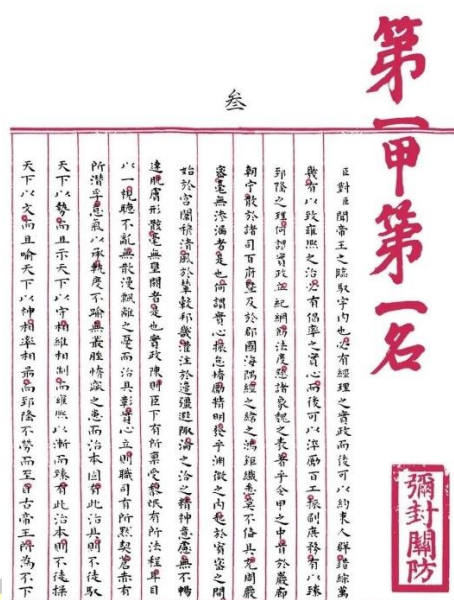 第一甲第一名
彌封關防
叁
臣對臣聞帝王之臨馭宇內也必有經理之實政而後可以約束人群錯綜萬
幾有以致雍熙之治必有倡率之實心而後可以淬勵百工振刷庶務有以臻
郅隆之理何謂實政立紀綱飭法度懸諸象魏之表著乎令甲之中首於嚴廊
朝宁散於諸司百府暨及於郡國海隅經之緯之鴻鉅纖悉莫不備具充周嚴
密毫無滲漏者是也何謂實心振怠惰勵精明發乎淵微之內起於宥密之間
始於宮闈穆清風於輦轂邦畿灌注於邊疆遐陬淪之洽之精神意慮無不暢
達肌膚形骸毫無壅閼者是也實政陳則臣下有所稟受黎氓有所法程耳目
以一視聽不亂無散漫飄離之憂而治具彰實心立則職司有所默契蒼赤有
所潛孚意氣以承軌度不踰無叢脞惰窳之患而治本固有此治具則不徒馭
天下以勢而且示天下以守相維相制而雍熙以漸而臻有此治本則不徒操
天下以文而且喻天下以神相率相勗而郅隆不勞而至自古帝王所為不下